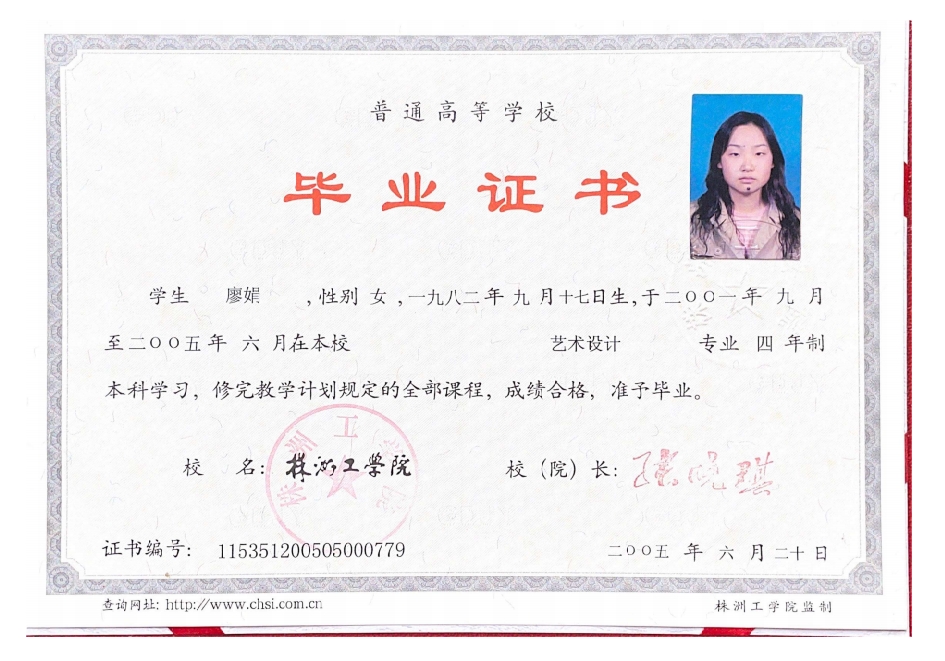 普通高等学校
毕业证书
学生 廖娟 ,性别 女 ,一九八二年 九 月十七日生,于二〇〇一年 九 月
至二〇〇五年 六 月在本校 艺术设计 专业 四 年制
本科学习，修完教学计划规定的全部课程，成绩合格，准予毕业。
校 名: 株洲工学院 校（院）长: 张晓琪
证书编号: 115351200505000779 二〇〇五 年 六 月 二十 日
查询网址: http://www.chsi.com.cn 株洲工学院监制